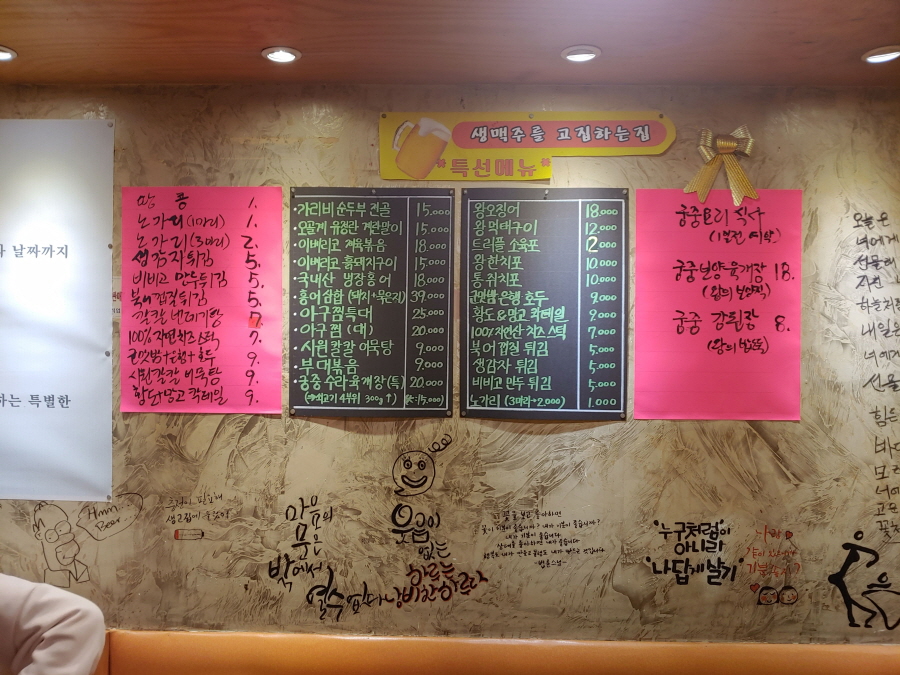 생맥주를 고집하는집
특선메뉴
날짜까지
하는 특별한
땅콩 1.
노가리 (1마리) 1.
노가리 (3마리) 2.
생감자 튀김 5.
비비고 만두튀김 5.
북어껍질튀김 5.
7.
100% 자연치즈스틱 7.
9.
시원칼칼 어묵탕 9.
황도+망고 칵테일 9.
·가리비 순두부 전골 15,000
·오골계 유정란 계란말이 15,000
·이베리코 제육볶음 18,000
·이베리코 흙돼지구이 15,000
·국내산 명장홍어 18,000
·홍어삼합 (돼지+묵은지) 39,000
·아구찜특대 25,000
·아구찜 (대) 20,000
·시원칼칼 어묵탕 9,000
·부대볶음 9,000
·궁중 수라육개장(특) 20,000
(⇒쇠고기 4부위 300g↑) 15,000
왕오징어 18,000
왕먹태구이 12,000
트러플 소육포 2,000
왕한치포 10,000
통쥐치포 10,000
군맛밤 은행 호두 9,000
황도&망고 칵테일 9,000
100% 자연산 치즈스틱 7,000
북어 껍질 튀김 5,000
생감자 튀김 5,000
비비고 만두 튀김 5,000
노가리 (3마리→2,000) 1,000
궁중요리 식사
(1일전 예약)
궁중보양육개장 18.
(왕의 보양식)
궁중 강된장 8.
(왕의 밥도둑)
Hmm
Beer..
마음의
문은
밖에서
열수 없다
웃음이
없는
하루는
낭비한 하루다
-법륜스님-
누구처럼이
아니라
나답게 살기
오늘은
너에게
선물이
하늘처럼
내일은
너에게
선물
힘든